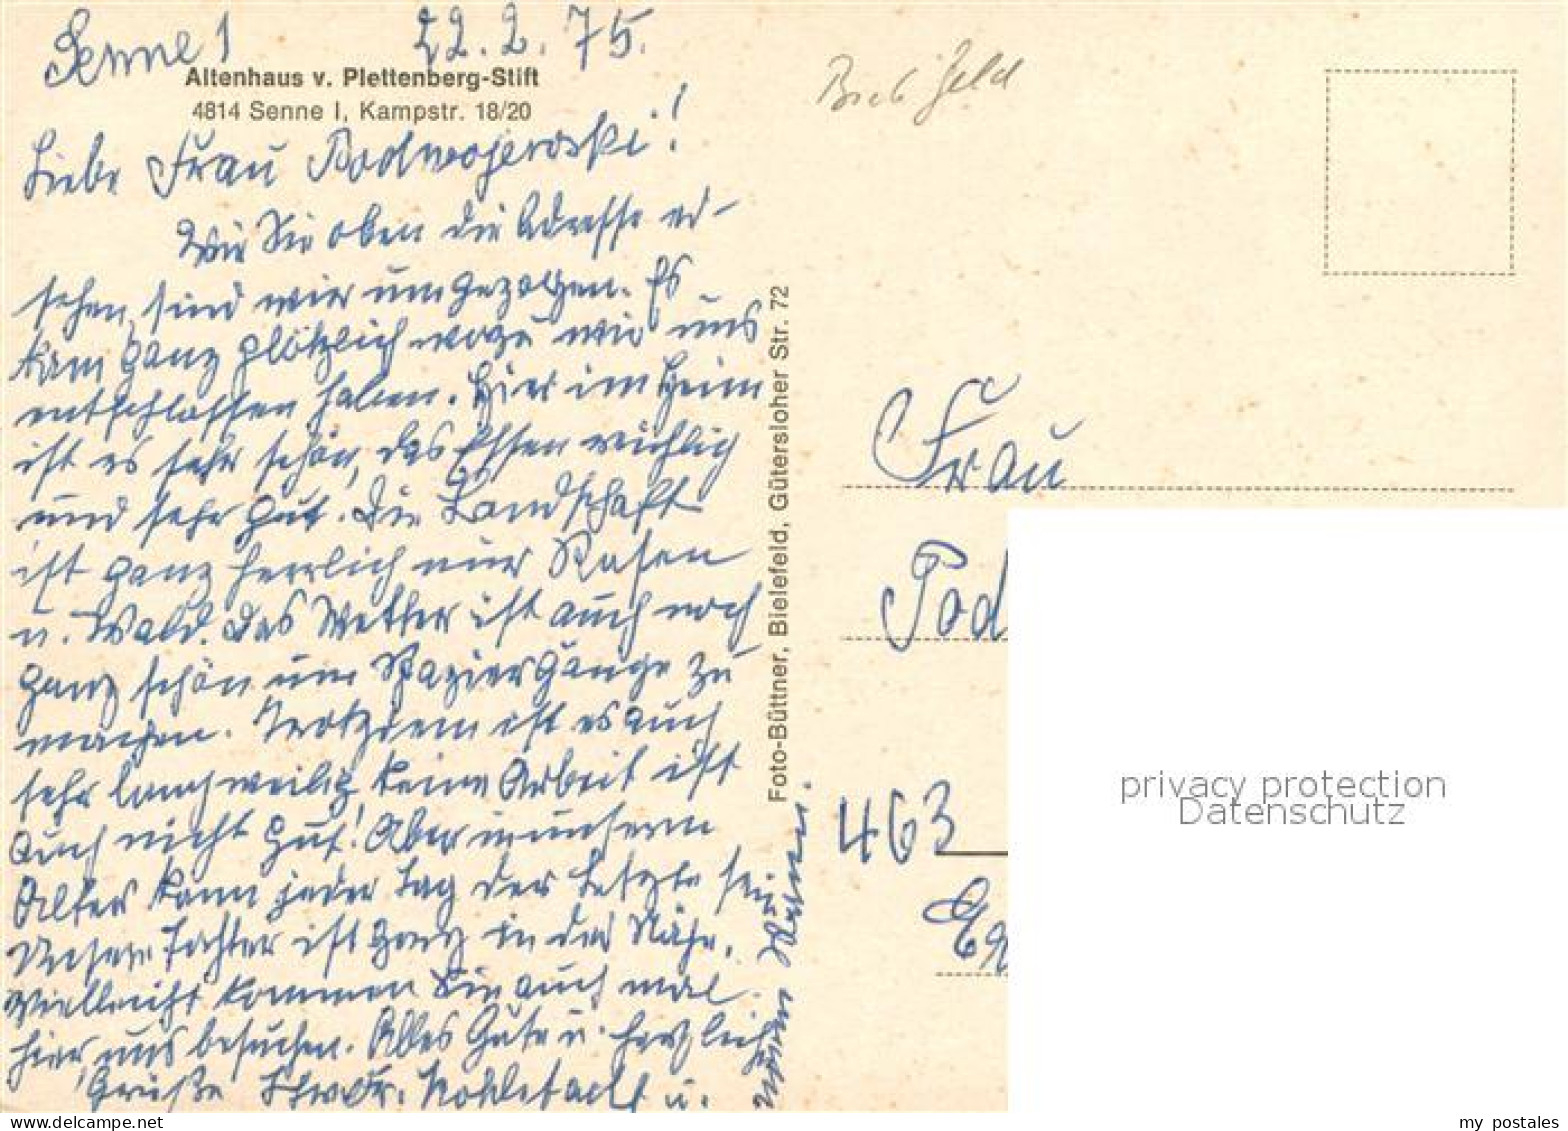 Senne 1 22.2.75.
Altenhaus v. Plettenberg-Stift
4814 Senne I, Kampstr. 18/20
Liebe Frau !
Wie Sie oben die Adresse er-
sehen, sind wir umgezogen. Es
kam ganz plötzlich wozu wir uns
entschlossen haben. Hier im Heim
ist es sehr schön, das Essen reichlich
und sehr gut. Die Landschaft
ist ganz herrlich nur Rasen
u. Wald. Das Wetter ist auch noch
ganz schön um Spaziergänge zu
machen. Trotzdem ist es auch
sehr langweilig keine Arbeit ist
auch nicht gut! Aber in unserm
Alter kann jeder Tag der Letzte sein
Unsere Tochter ist ganz in der Nähe.
Vielleicht kommen Sie auch mal
hier, uns besuchen. Alles Gute u. herzliche
Grüße u.
Foto-Büttner, Bielefeld, Gütersloher Str. 72
Bielefeld
Frau
Pod
463
privacy protection
Datenschutz
my_postales